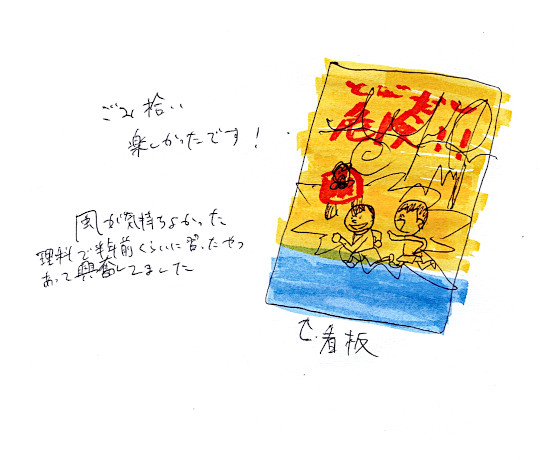 ごみ拾い
楽しかったです!
風が気持ちよかった
理科で半年前くらいに習ったやつ
あって興奮してました
危険!!
看板